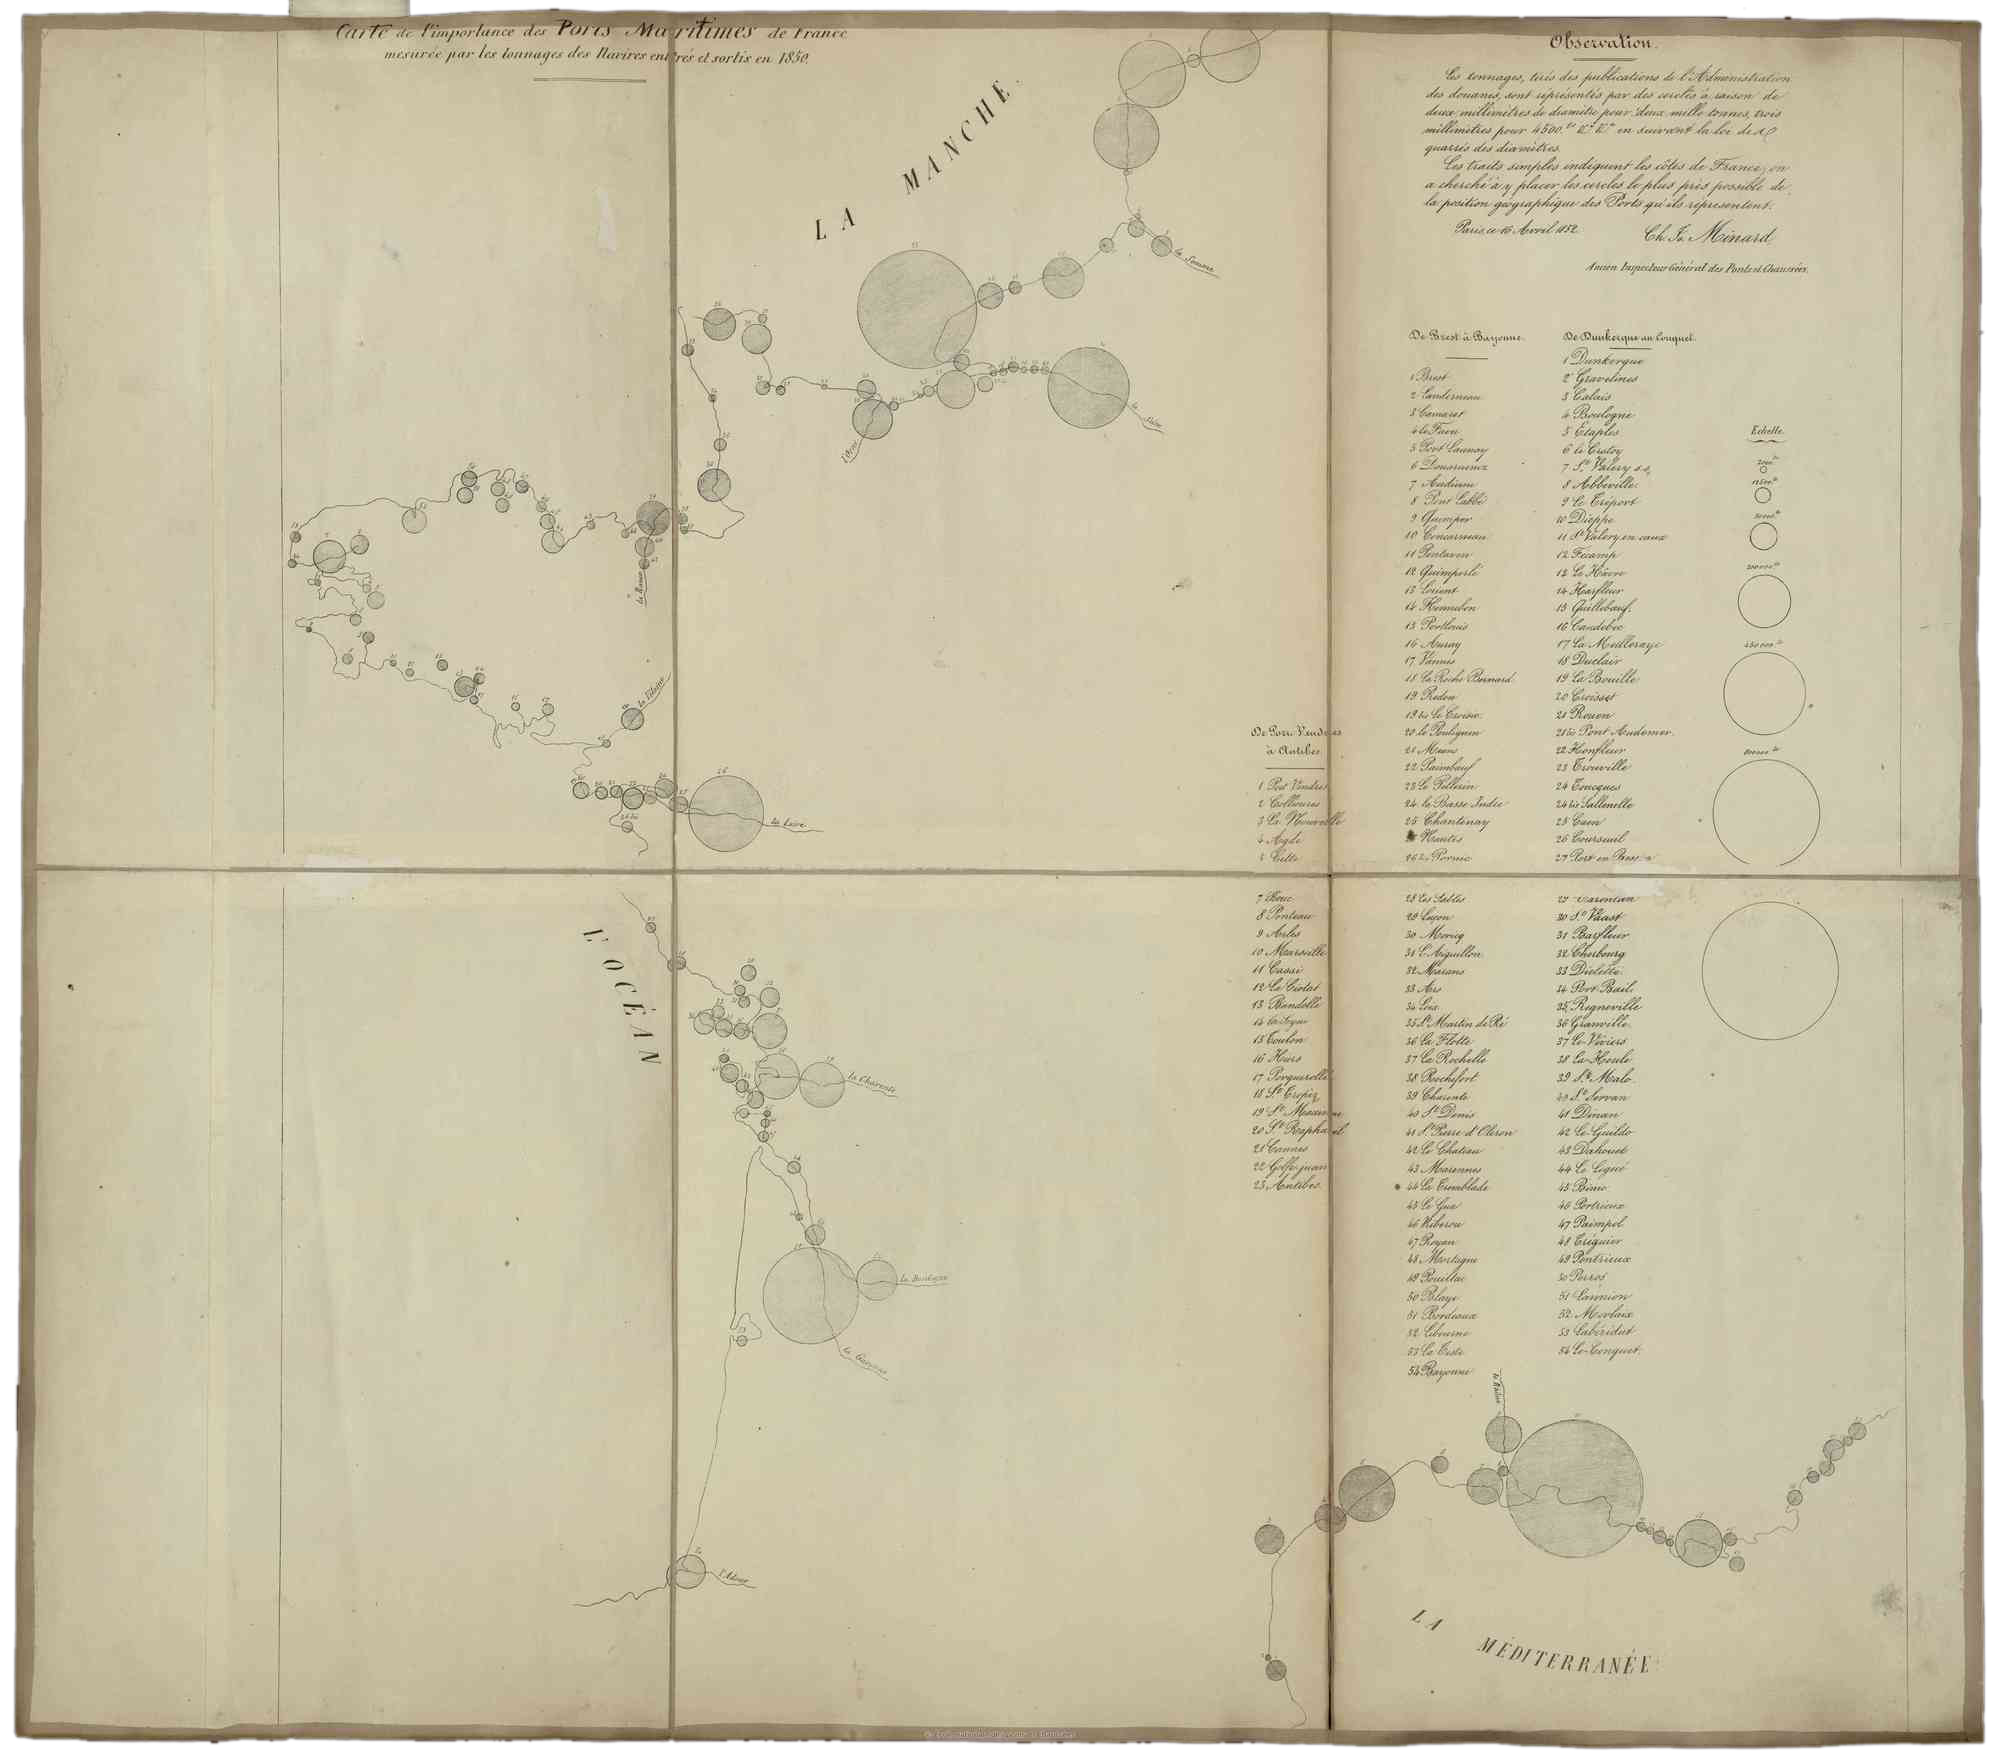 Carte de l'importance des Ports Maritimes de France
mesurée par les tonnages des Navires entrés et sortis en 1850.
LA MANCHE
la Somme
la Seine
l'Orne
la Rance
la Vilaine
la Loire
L'OCÉAN
la Charente
la Dordogne
la Garonne
l'Adour
Observation.
Les tonnages, tirés des publications de l'Administration
des douanes, sont représentés par des cercles à raison de
deux millimètres de diamètre pour deux mille tonnes, trois
millimètres pour 4500 en suivant la loi des
quarrés des diamètres.
Les traits simples indiquent les côtes de France; on
a cherché à y placer les cercles le plus près possible de
la position géographique des Ports qu'ils représentent.
Paris, ce 16 Avril 1852.
Ch. J. Minard,
Ancien Inspecteur Général des Ponts et Chaussées.
De Port-Vendres
à Antibes.
1 Port Vendres
2 Collioures
3 La Nouvelle
4 Agde
5 Cette
7 Bouc
8 Ponteau
9 Arles
10 Marseille
11 Cassi
12 La Ciotat
13 Bandolle
14 la Seyne
15 Toulon
16 Hières
17 Porquerolle
18 St Tropez
19 Ste Maxime
20 St Raphael
21 Cannes
22 Golfe juan
23 Antibes.
De Brest à Bayonne.
1 Brest
2 Landerneau
3 Camaret
4 le Faou
5 Port Launay
6 Douarnenez
7 Audierne
8 Pont Labbé
9 Quimper
10 Concarneau
11 Pontaven
12 Quimperlé
13 Lorient
14 Hennebon
15 Portlouis
16 Auray
17 Vannes
18 La Roche Bernard.
19 Redon
19 bis Le Croisic.
20 le Pouliguen
21 Méans
22 Paimbœuf
23 Le Pellerin
24 la Basse Indre
25 Chantenay
Nantes
26 bis Pornic
28 Les Sables
29 Luçon
30 Moricq
31 L'Aiguillon
32 Marans
33 Ars
34 Loix
35 St Martin de Ré
36 La Flotte
37 La Rochelle
38 Rochefort
39 Charente
40 St Denis
41 St Pierre d'Oleron
42 Le Chateau
43 Marennes
44 La Tremblade
45 Le Gua
46 Riberou
47 Royan
48 Mortagne
49 Pouillac
50 Blaye
51 Bordeaux
52 Libourne
53 La Teste
54 Bayonne
De Dunkerque au Conquet.
1 Dunkerque
2 Gravelines
3 Calais
4 Boulogne
5 Etaples
6 le Crotoy
7 St Valery s.s.
8 Abbeville
9 Le Tréport
10 Dieppe
11 St Valery en caux
12 Fécamp
13 Le Hâvre
14 Harfleur
15 Quillebœuf.
16 Caudebec
17 La Mailleraye
18 Duclair
19 La Bouille
20 Croisset
21 Rouen
21 bis Pont Audemer.
22 Honfleur
23 Trouville
24 Toucques
24 bis Sallenelle
25 Caen
26 Courseuil
27 Port en Bess.n
29 Carentan
30 St Vaast
31 Barfleur
32 Cherbourg
33 Diélette.
34 Port Bail.
35 Regneville
36 Granville.
37 Le Viviers
38 La Houle
39 St Malo.
40 St Servan
41 Dinan
42 Le Guildo
43 Dahouet
44 Le Légué
45 Binic
46 Portrieux
47 Paimpol
48 Tréguier
49 Pontrieux
50 Perros
51 Lannion
52 Morlaix
53 Labérildut
54 Le Conquet.
Echelle.
2000 tx
12500 tx
200000 tx
450000 tx
800000 tx
le Rhône
LA MÉDITERRANÉE